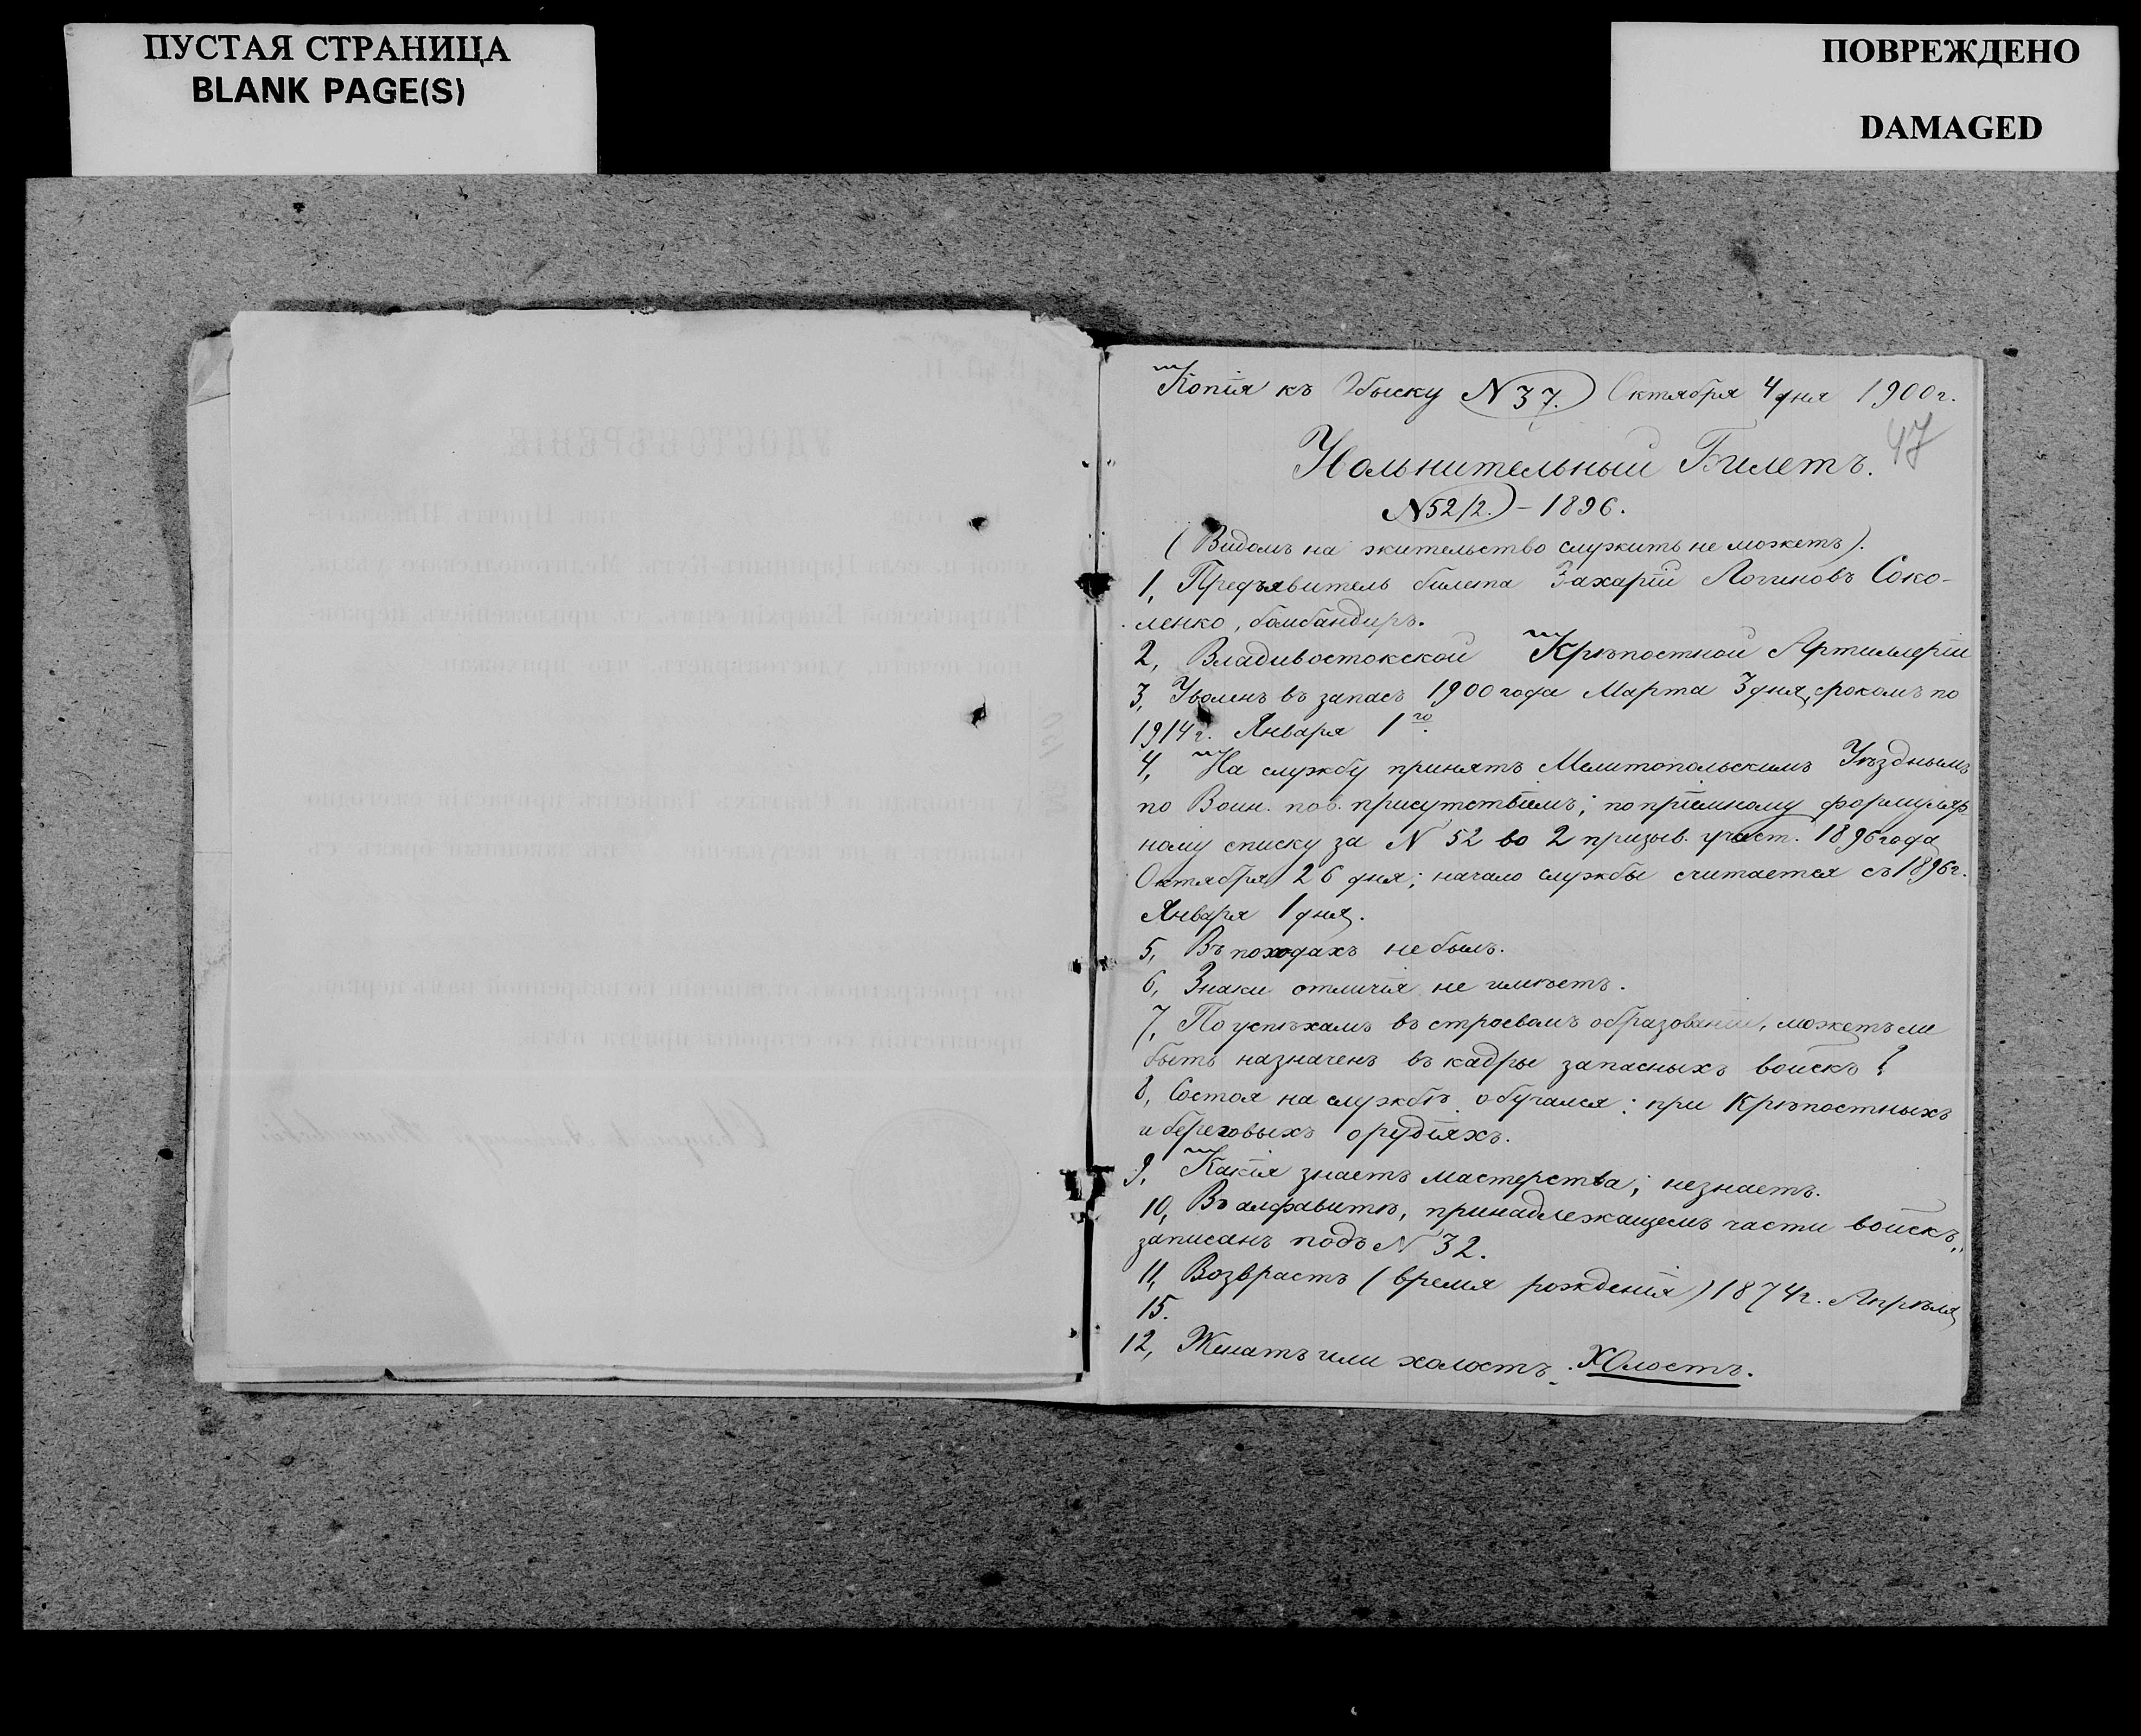 ПУСТАЯ СТРАНИЦА
BLANK PAGE(S)
ПОВРЕЖДЕНО
DAMAGED
Копія къ Обыску N 37. Октября 4 дня 1900 г.
47
Увольнительный Билетъ.
N 52/2. – 1896.
(Видомъ на жительство служить не можетъ).
1, Предъявитель билета Захарій Логиновъ Соко-
ленко, бомбандиръ.
2, Владивостокской Крѣпостной Артиллеріи
3, Уволенъ въ запасъ 1900 года Марта 3 дня, срокомъ по
1914 г. Января 1го.
4, На службу принятъ Мелитопольскимъ Уѣзднымъ
по Воин. пов. присутствіемъ; по пріемному формуляр
ному списку за N 52 во 2 призыв. участ. 1896 года
Октября 26 дня; начало службы считается съ 1896 г.
Января 1 дня.
5, Въ походахъ не былъ.
6, Знаки отличія не имѣетъ.
7, По успѣхамъ въ строевомъ образованіи, можетъ ли
быть назначенъ въ кадры запасныхъ войскъ?
8, Состоя на службѣ обучался: при Крѣпостныхъ
и береговыхъ орудіяхъ.
9, Какія знаетъ мастерства; незнаетъ.
10, Въ алфавитѣ, принадлежащемъ части войскъ,
записанъ подъ N 32.
11, Возврастъ (время рожденія) 1874 г. Апрѣля
15.
12, Женатъ или холостъ. Холостъ.
УДОСТОВѢРЕНІЕ